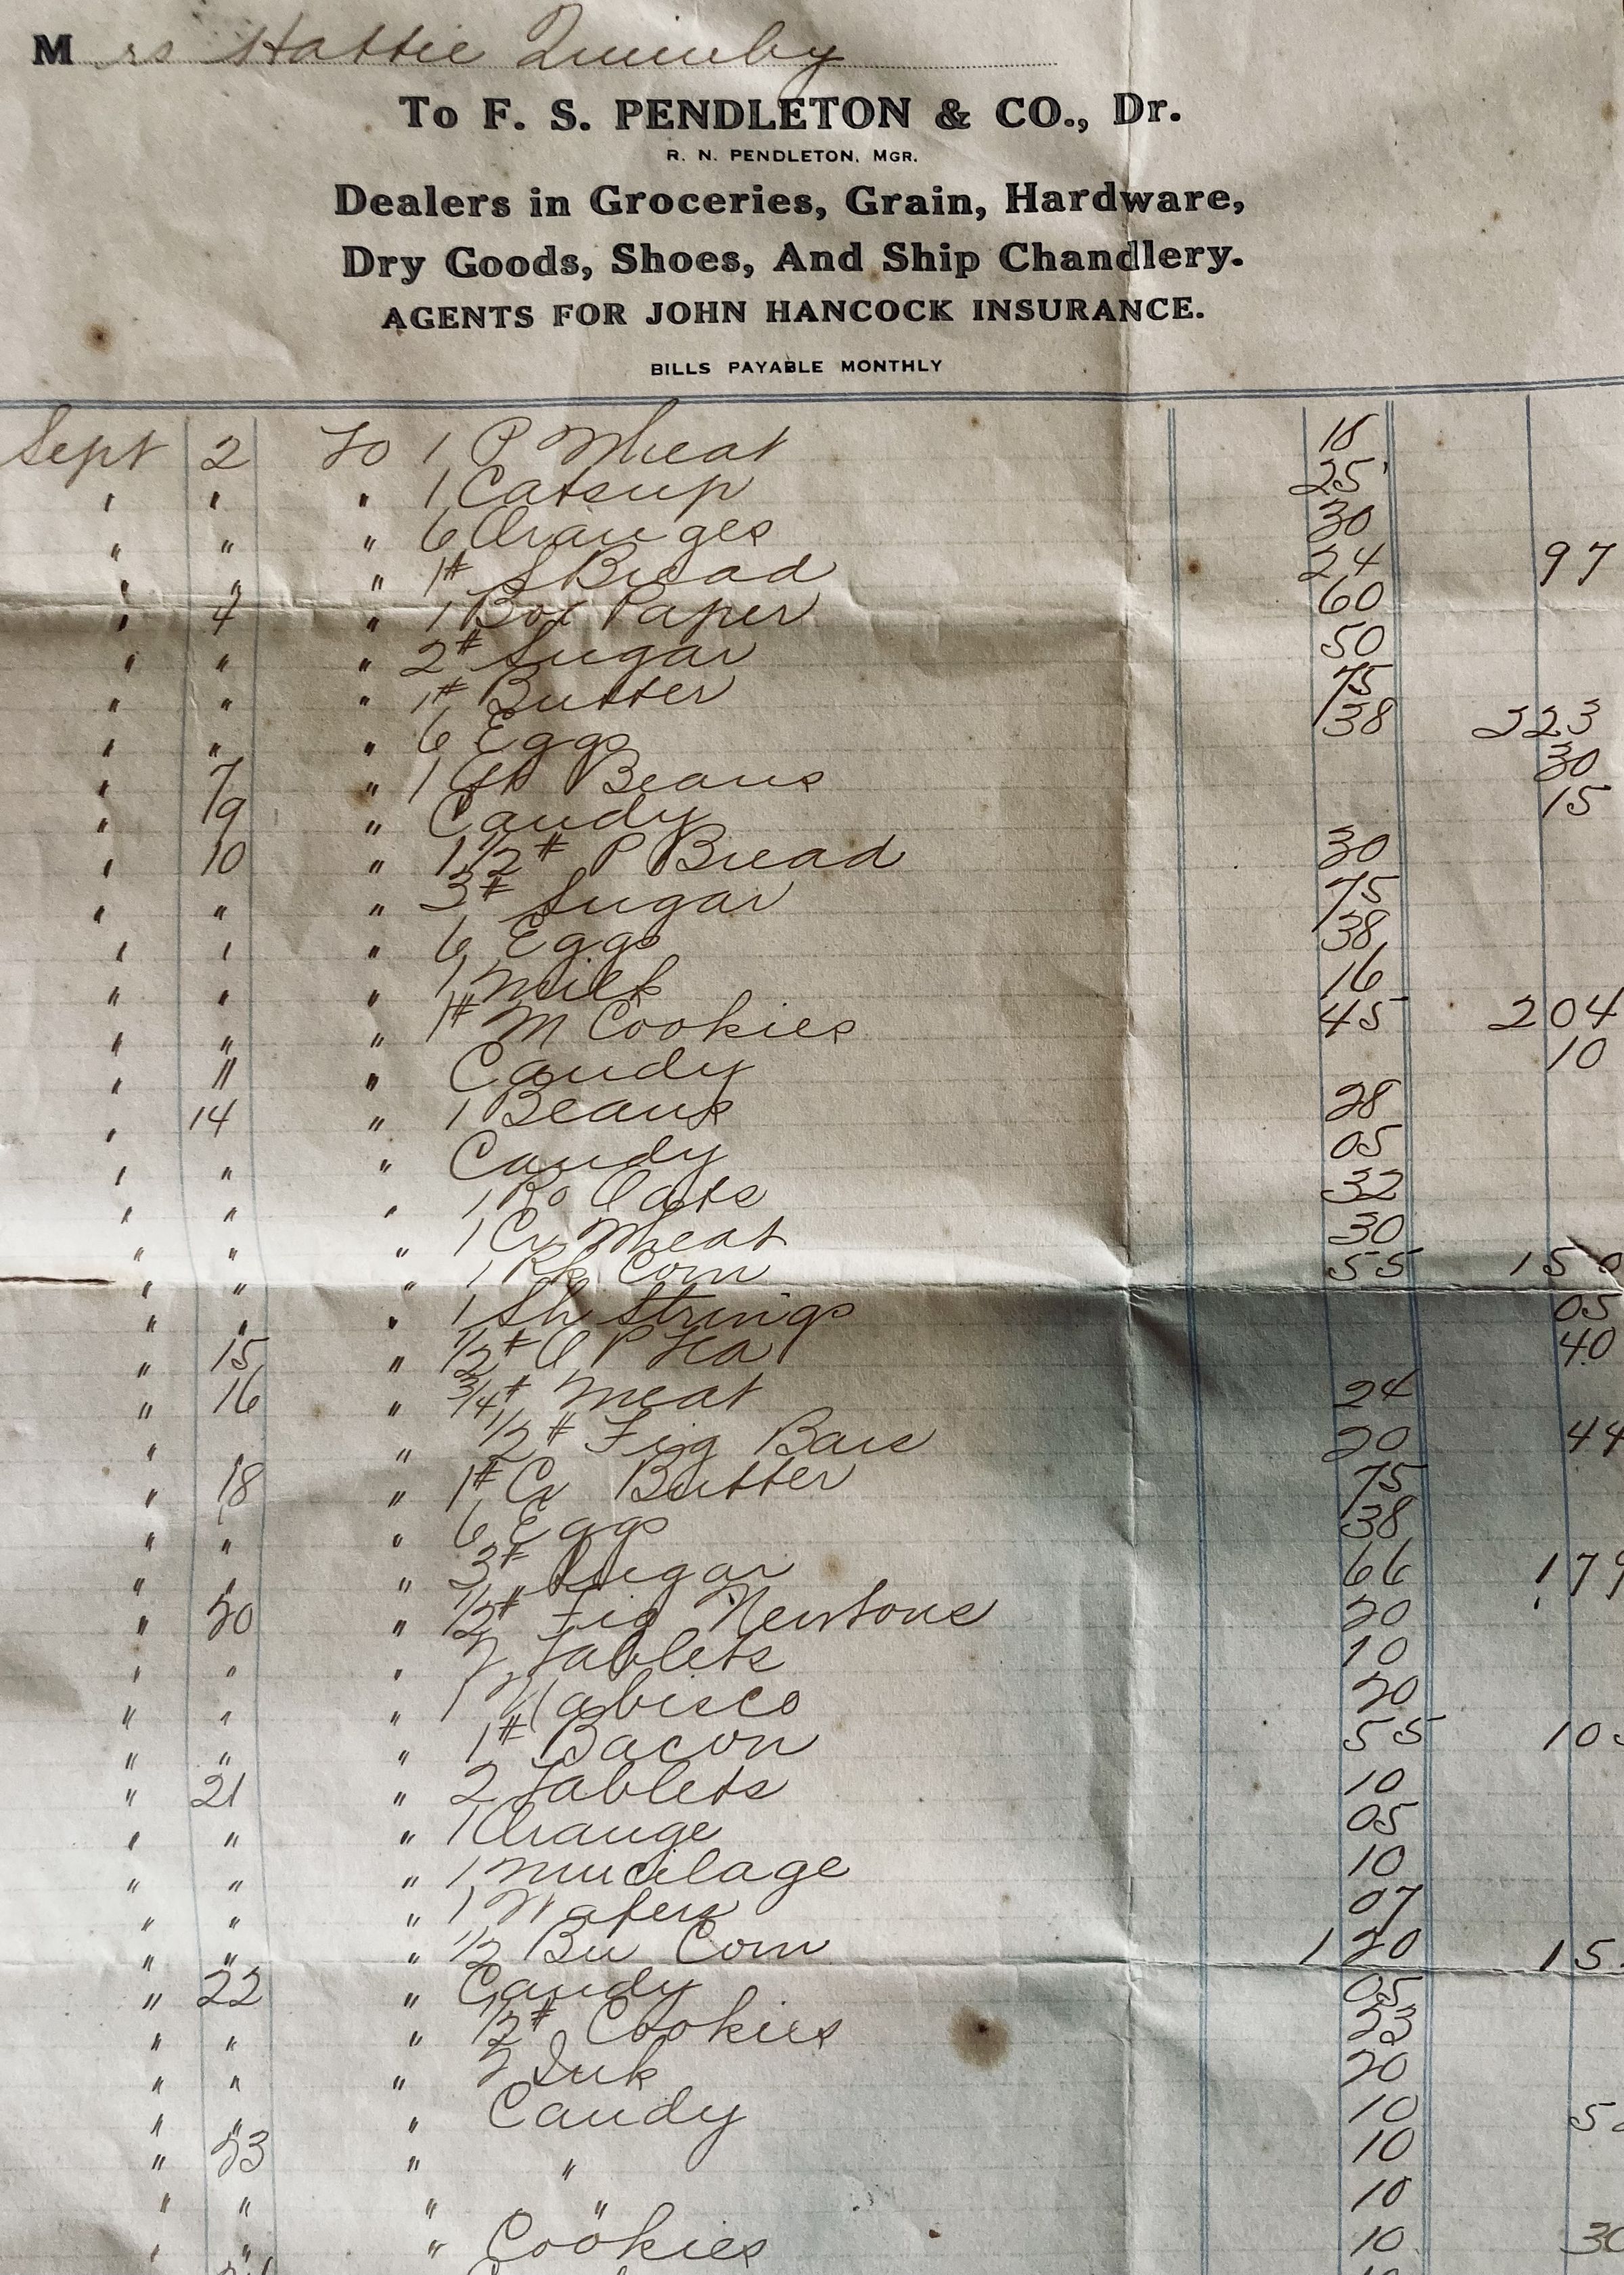 Mrs Hattie Quimby
To F. S. PENDLETON & CO., Dr.
R. N. PENDLETON, MGR.
Dealers in Groceries, Grain, Hardware,
Dry Goods, Shoes, And Ship Chandlery.
AGENTS FOR JOHN HANCOCK INSURANCE.
BILLS PAYABLE MONTHLY
Sept 2 To 1 P Wheat 18
" " " 1 Catsup 25
" " " 6 Oranges 30
" " " 1# S Bread 24 97
" 4 " 1 Box Paper 60
" " " 2# Sugar 50
" " " 1# Butter 75
" " " 6 Eggs 38 223
" 7 " 1 Beans 30
" 9 " Candy 15
" 10 " 1 1/2# P Bread 30
" " " 3# Sugar 75
" " " 6 Eggs 38
" " " 1 Milk 16
" " " 1# M Cookies 45 204
" 11 " Candy 10
" 14 " 1 Beans 28
" " " Candy 05
" " " 1 Ro Oats 32
" " " 1 Cr Wheat 30
" " " 1 Pk Corn 55 150
" " " 1 Sh Strings 05
" 15 " 1/2# O P Tea 40
" 16 " 3/4# Meat 24
" " 1/2# Fig Bars 20 44
" 18 " 1# Cr Butter 75
" " " 6 Eggs 38
" " " 3# Sugar 66 179
" 20 " 1/2# Fig Newtons 20
" " " 2 Tablets 10
" " " 1 Nabisco 20
" " " 1# Bacon 55 105
" 21 " 2 Tablets 10
" " " 1 Orange 05
" " " 1 Mucilage 10
" " " 1 Wafers 07
" " " 1/2 Bu Corn 1 20 15
" 22 " Candy 05
" " " 1/2# Cookies 23
" " " 2 Ink 20
" " " Candy 10 5
" 23 " " 10
" " " " 10
" " " Cookies 10 30